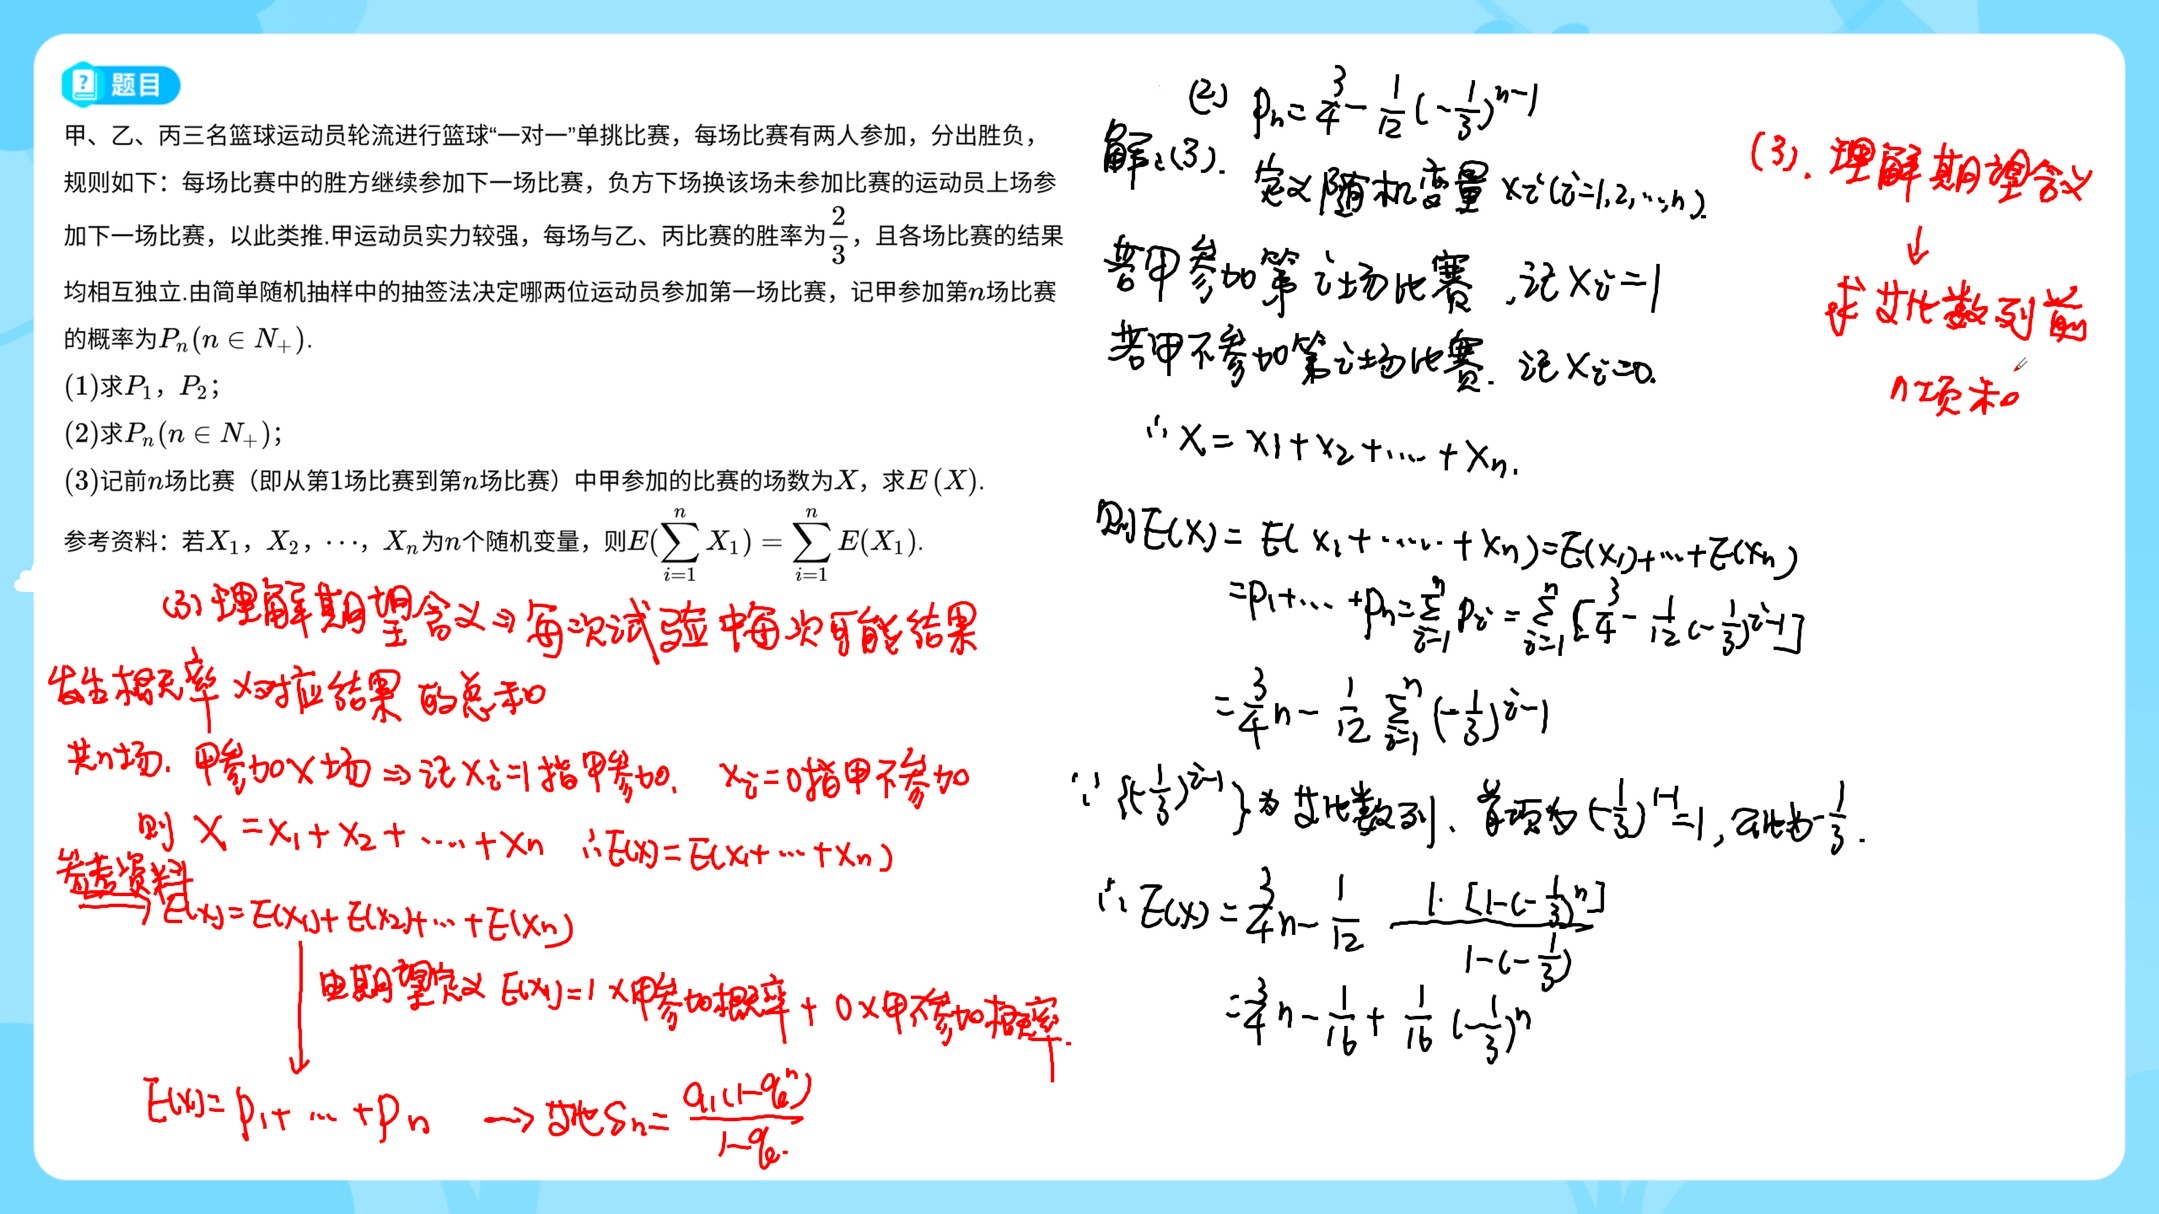 题目
甲、乙、丙三名篮球运动员轮流进行篮球“一对一”单挑比赛，每场比赛有两人参加，分出胜负，
规则如下：每场比赛中的胜方继续参加下一场比赛，负方下场换该场未参加比赛的运动员上场参
加下一场比赛，以此类推.甲运动员实力较强，每场与乙、丙比赛的胜率为2/3，且各场比赛的结果
均相互独立.由简单随机抽样中的抽签法决定哪两位运动员参加第一场比赛，记甲参加第n场比赛
的概率为Pₙ(n∈N₊).
(1)求P₁，P₂；
(2)求Pₙ(n∈N₊)；
(3)记前n场比赛（即从第1场比赛到第n场比赛）中甲参加的比赛的场数为X，求E(X).
参考资料：若X₁，X₂，⋯，Xₙ为n个随机变量，则E(∑_{i=1}^{n} X₁)=∑_{i=1}^{n} E(X₁).
(3)理解期望含义⇒每次试验中每次可能结果
发生概率×对应结果的总和
共n场.甲参加X场⇒记Xi=1指甲参加. Xi=0指甲不参加
则 X=X₁+X₂+⋯+Xn ∴E(X)=E(X₁+⋯+Xn)
参考资料
E(X)=E(X₁)+E(X₂)+⋯+E(Xn)
由期望定义 E(X₁)=1×甲参加概率+0×甲不参加概率.
E(X)=p₁+⋯+pn → 等比Sn=a₁(1-qⁿ)/(1-q).
(2) pn=3/4-1/12(-1/3)^{n-1}
解:(3). 定义随机变量Xi(i=1,2,⋯,n).
若甲参加第i场比赛,记Xi=1
若甲不参加第i场比赛.记Xi=0.
∴X=X₁+X₂+⋯+Xn.
则E(X)=E(X₁+⋯+Xn)=E(X₁)+⋯+E(Xn)
=p₁+⋯+pn=∑_{i=1}^{n} pi=∑_{i=1}^{n}[3/4-1/12(-1/3)^{i-1}]
=3/4n-1/12∑_{i=1}^{n}(-1/3)^{i-1}
∵{(-1/3)^{i-1}}为等比数列、首项为(-1/3)^{1-1}=1,公比为-1/3.
∴E(X)=3/4n-1/12 1·[1-(-1/3)ⁿ]/(1-(-1/3))
=3/4n-1/16+1/16(-1/3)ⁿ
(3).理解期望含义
↓
求等比数列前
n项和